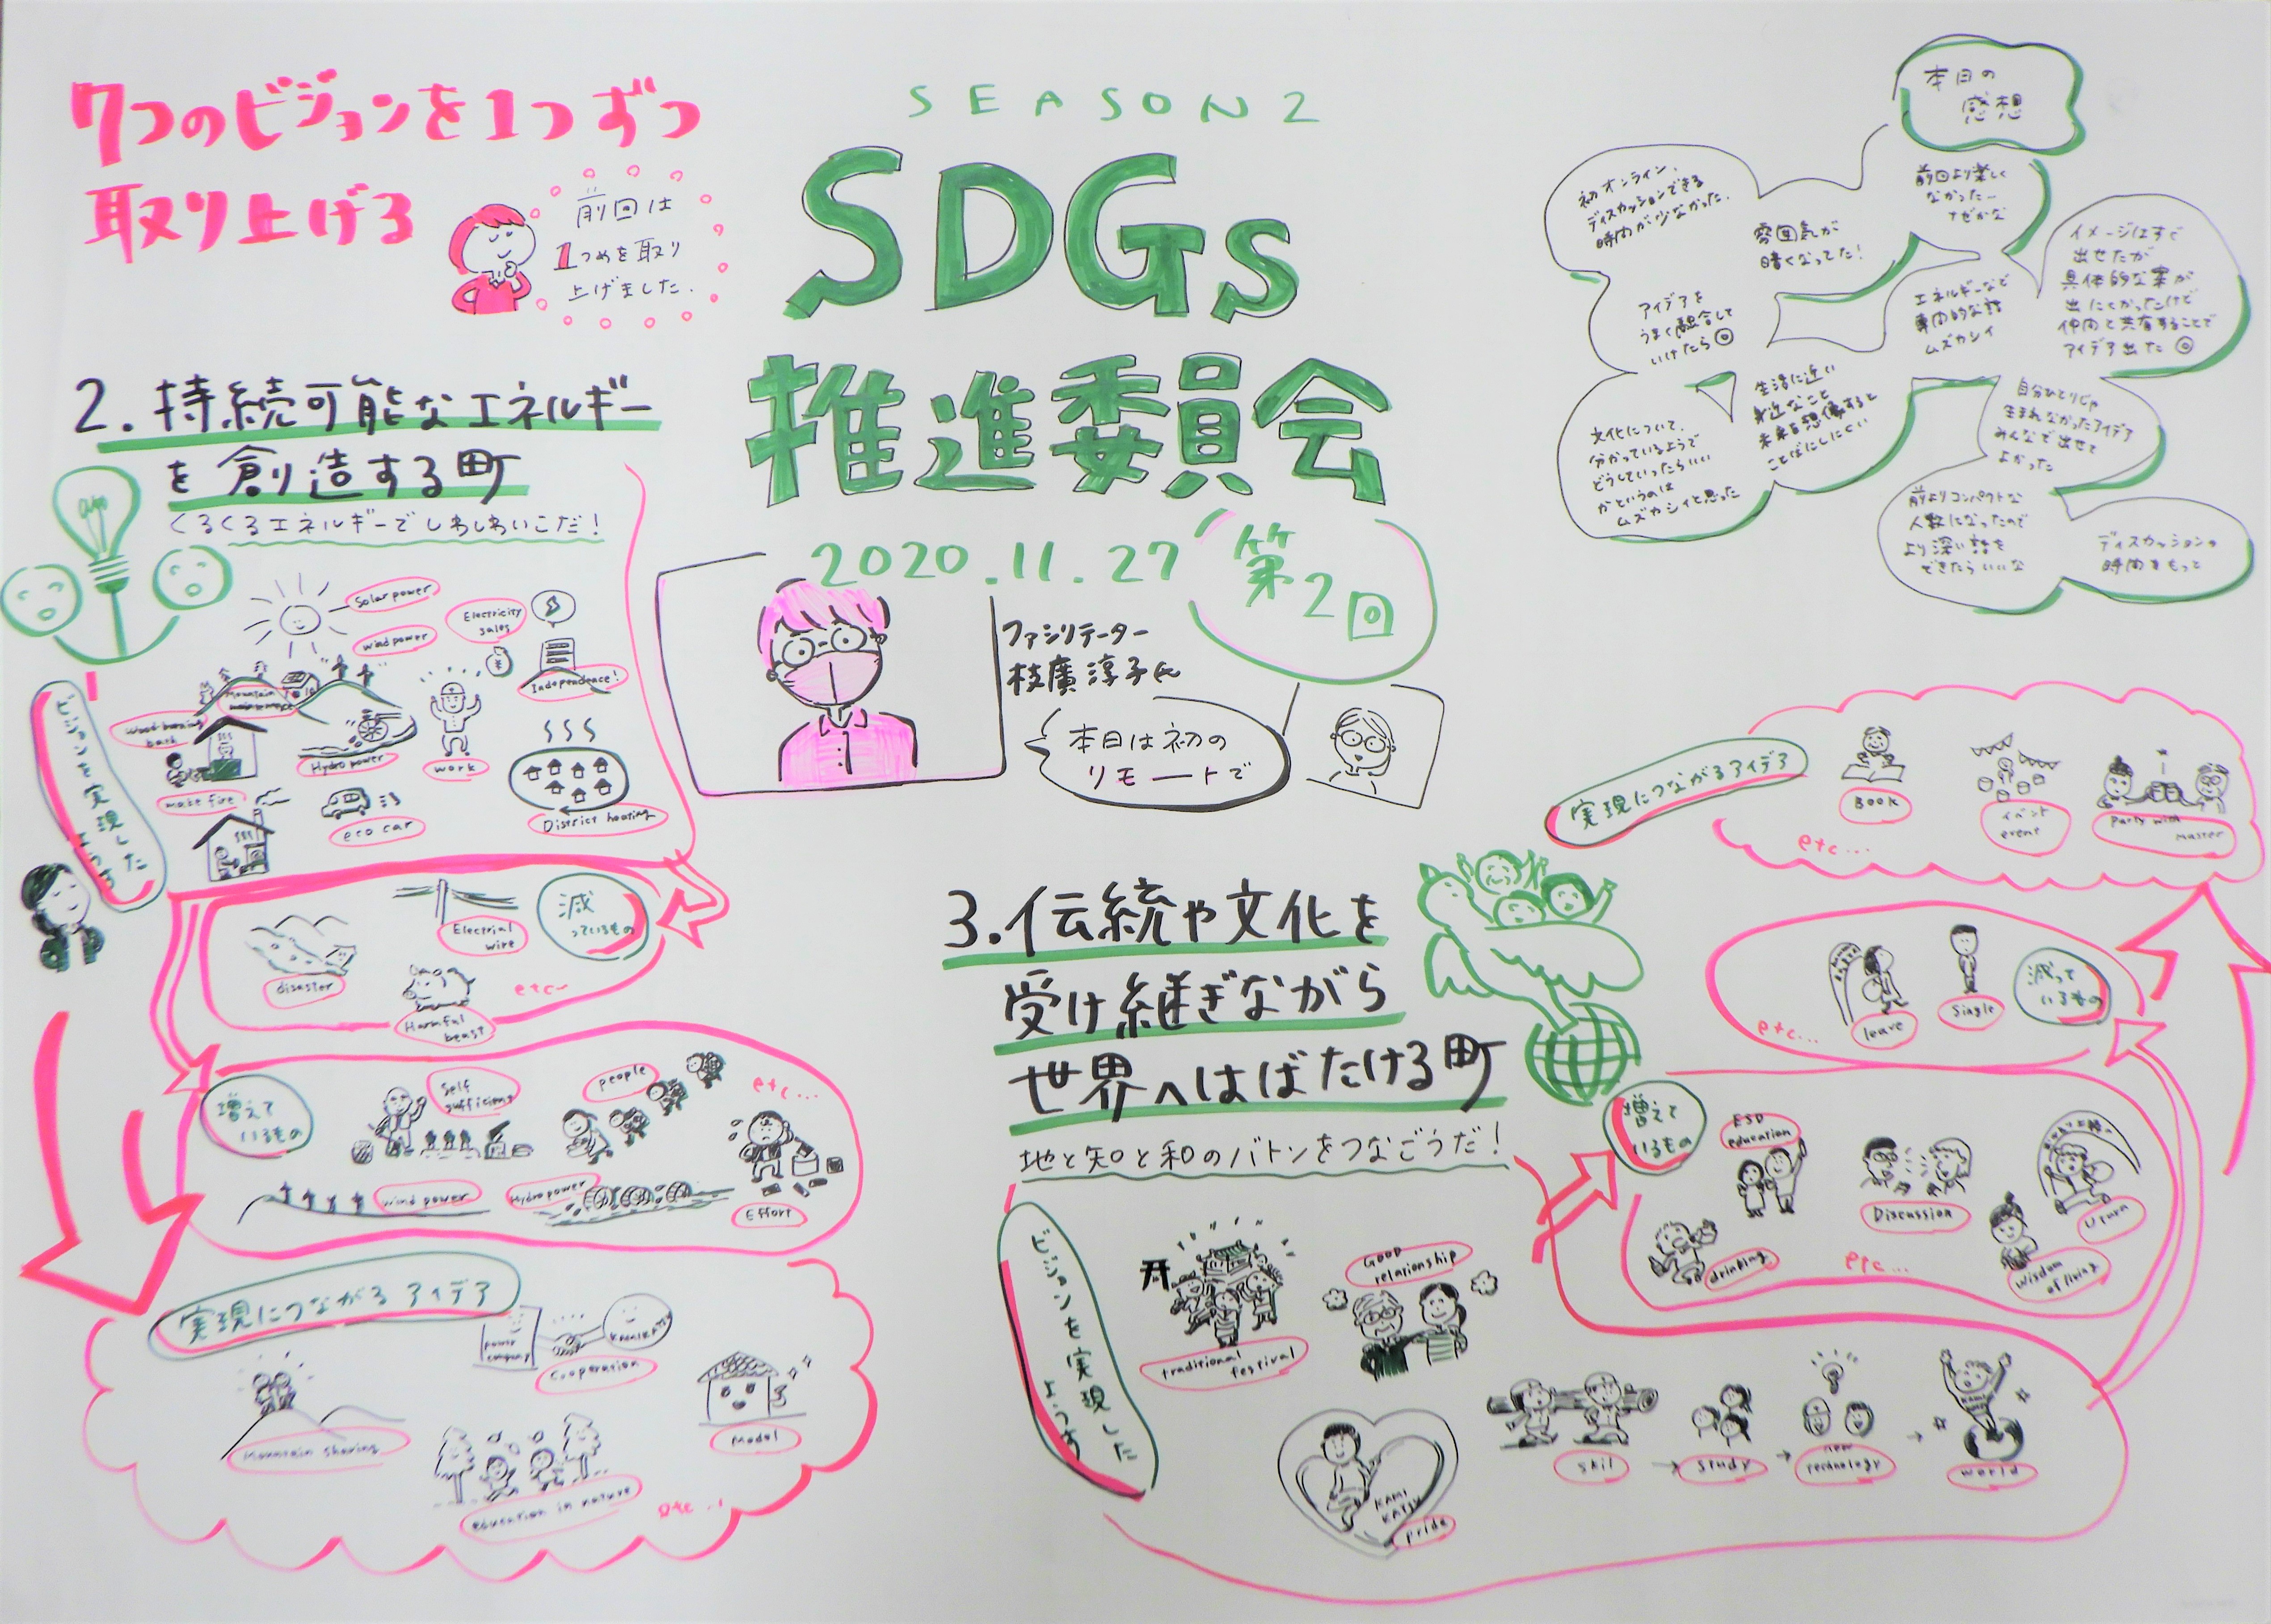 7つのビジョンを1つずつ
取り上げる
前回は
1つめを取り
上げました.
SEASON2
SDGs
推進委員会
2020.11.27
第2回
ファシリテーター
枝廣淳子氏
本日は初の
リモートで
本日の
感想
初オンライン、
ディスカッションできる
時間が少なかった.
雰囲気が
暗くなってた!
前回より楽しく
なかった…
なぜかな
イメージはすぐ
出せたが
具体的な案が
出にくかったけど
仲間と共有することで
アイデア出た◎
アイデアを
うまく融合して
いけたら◎
エネルギーなど
専門的な話
ムズカシイ
文化について、
分かっているようで
どうしていったらいい
かというのは
ムズカシイと思った
生活に近い
身近なこと
未来を想像すると
ことばにしにくい
自分ひとりじゃ
生まれなかったアイデア
みんなで出せて
よかった
前よりコンパクトな
人数になったので
より深い話を
できたらいいな
ディスカッションの
時間をもって
2.持続可能なエネルギー
を創造する町
くるくるエネルギーでしわしわいこだ!
ビジョンを実現した
ようす
Solar power
wind power
Electricity
sales
Independence!
Mountain
maintenance
Wood-burning
bath
make fire
Hydro power
work
eco car
District heating
減
っているもの
Electrial
wire
disaster
Harmful
beast
etc…
増えて
いるもの
Self
sufficient
people
etc...
wind power
Hydropower
Effort
実現につながるアイデア
power
company
KAMIKATSU
Cooperation
Mountain sharing
education in nature
Model
etc...
3.伝統や文化を
受け継ぎながら
世界へはばたける町
地と知と和のバトンをつなごうだ!
ビジョンを実現した
ようす
traditional
festival
GOOD
relationship
KAMI
KATSU
pride
skil
→
study
→
new
technology
→
KAMI
world
増えて
いるもの
ESD
education
Discussion
Uturn
drinking
etc...
wisdom
of living
減って
いるもの
leave
Single
etc...
実現につながるアイデア
BOOK
イベント
event
Party with
master
etc...